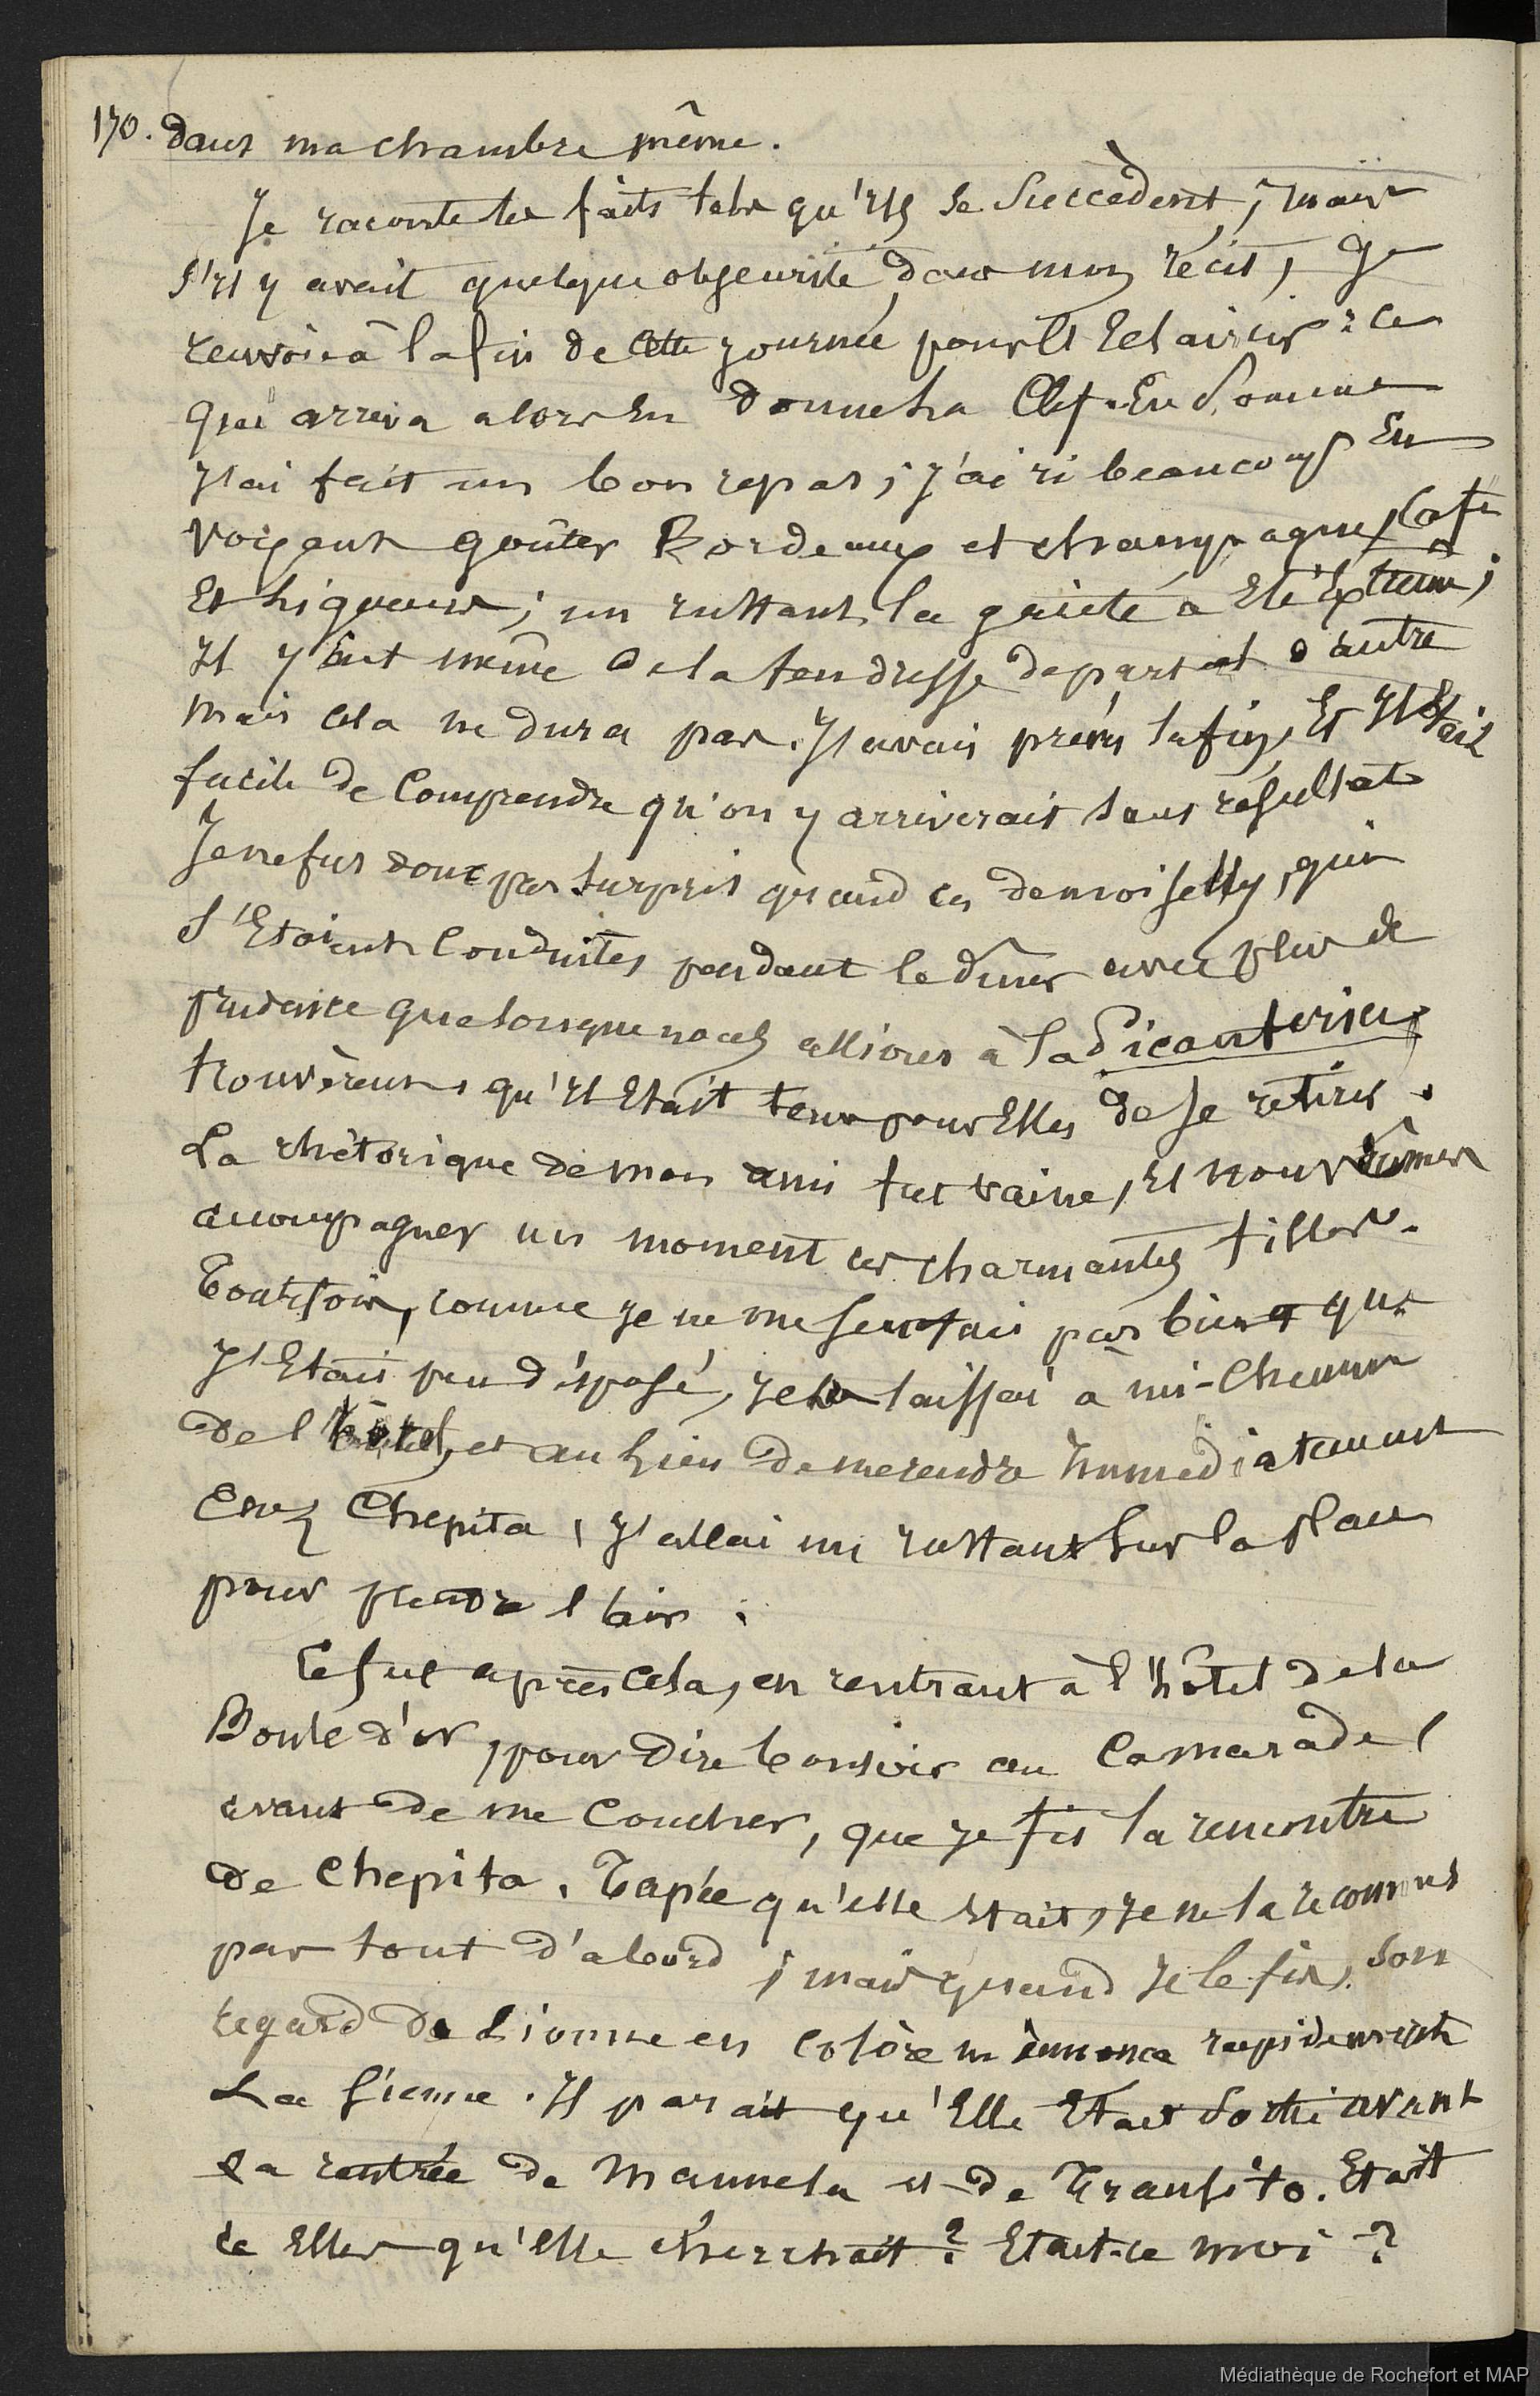 170. dans ma chambre même.
Je raconte les faits tels qu'ils se succèdent, mais
s'il y avait quelque obscurité dans mon récit, Je
renvoie à la fin de cette journée pour l'éclaircir : ce
qui arriva alors en donne la Clef. En somme
J'ai fait un bon repas ; j'ai ri beaucoup En
voyant goûter Bordeaux et champagne, Café
Et liqueurs ; un instant la gaieté a Eté Extrême ;
Il y eut même de la tendresse de part et d'autre
mais cela ne dura pas. J'avais prévu la fin, Et Il Etait
facile de Comprendre qu'on y arriverait sans résultat
Je ne fus donc pas surpris quand ces demoiselles, qui
s'Etaient Conduites pendant le dîner avec plus de
prudence que lorsque nous allions à la Picanteria,
trouvèrent qu'Il Etait tems pour Elles de se retirer.
La rhétorique de mon ami fut vaine, et nous dûmes
accompagner un moment ces charmantes filles.
Toutefois, comme je ne me sentais pas bien et que
J'Etais peu disposé, je les laissai à mi-Chemin
de l'hôtel, et au lieu de me rendre Immédiatement
Chez Chepita, J'allai un instant sur la place
pour prendre l'air.
Ce fut après cela, en rentrant à l'hôtel de la
Boule d'or, pour dire bonsoir au Camarade,
avant de me Coucher, que je fis la rencontre
de Chepita. Tapée qu'elle était, je ne la reconnus
pas tout d'abord ; mais quand je le fis, son
regard de Lionne en colère m'annonça rapidement
La sienne. Il parait qu'Elle Etait Sortie avant
la rentrée de Manuela et de Transito. Etait
ce Elles qu'elle cherchait ? Etait-ce moi ?
Médiathèque de Rochefort et MAP